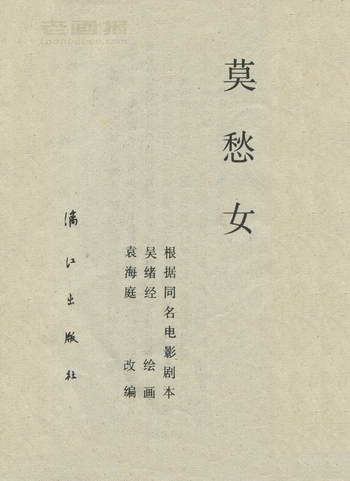 莫愁女
根据同名电影剧本
吴绪经 绘画
袁海庭 改编
漓江出版社
老画报
laohuabao.com